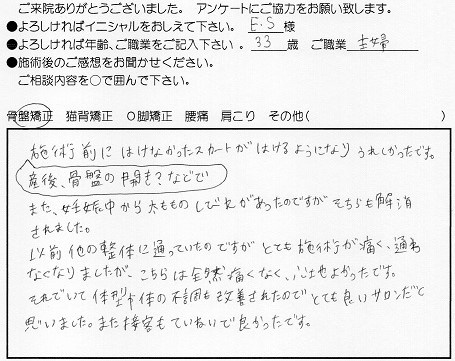 ご来院ありがとうございました。 アンケートにご協力をお願い致します。
●よろしければイニシャルをおしえて下さい。 E.S 様
●よろしければ年齢、ご職業をご記入下さい 。 33 歳 ご職業 主婦
●施術後のご感想をお聞かせください。
ご相談内容を〇で囲んで下さい。
骨盤矯正 猫背矯正 O脚矯正 腰痛 肩こり その他( )
施術前にはけなかったスカートがはけるようになりうれしかったです。
産後、骨盤の開き？などで
また、妊娠中から太もものしびれがあったのですがそちらも解消
されました。
以前他の整体に通っていたのですがとても施術が痛く、通わ
なくなりましたが、こちらは全然痛くなく、心地よかったです。
それでいて体型や体の不調も改善されたのでとても良いサロンだと
思いました。また接客もていねいで良かったです。